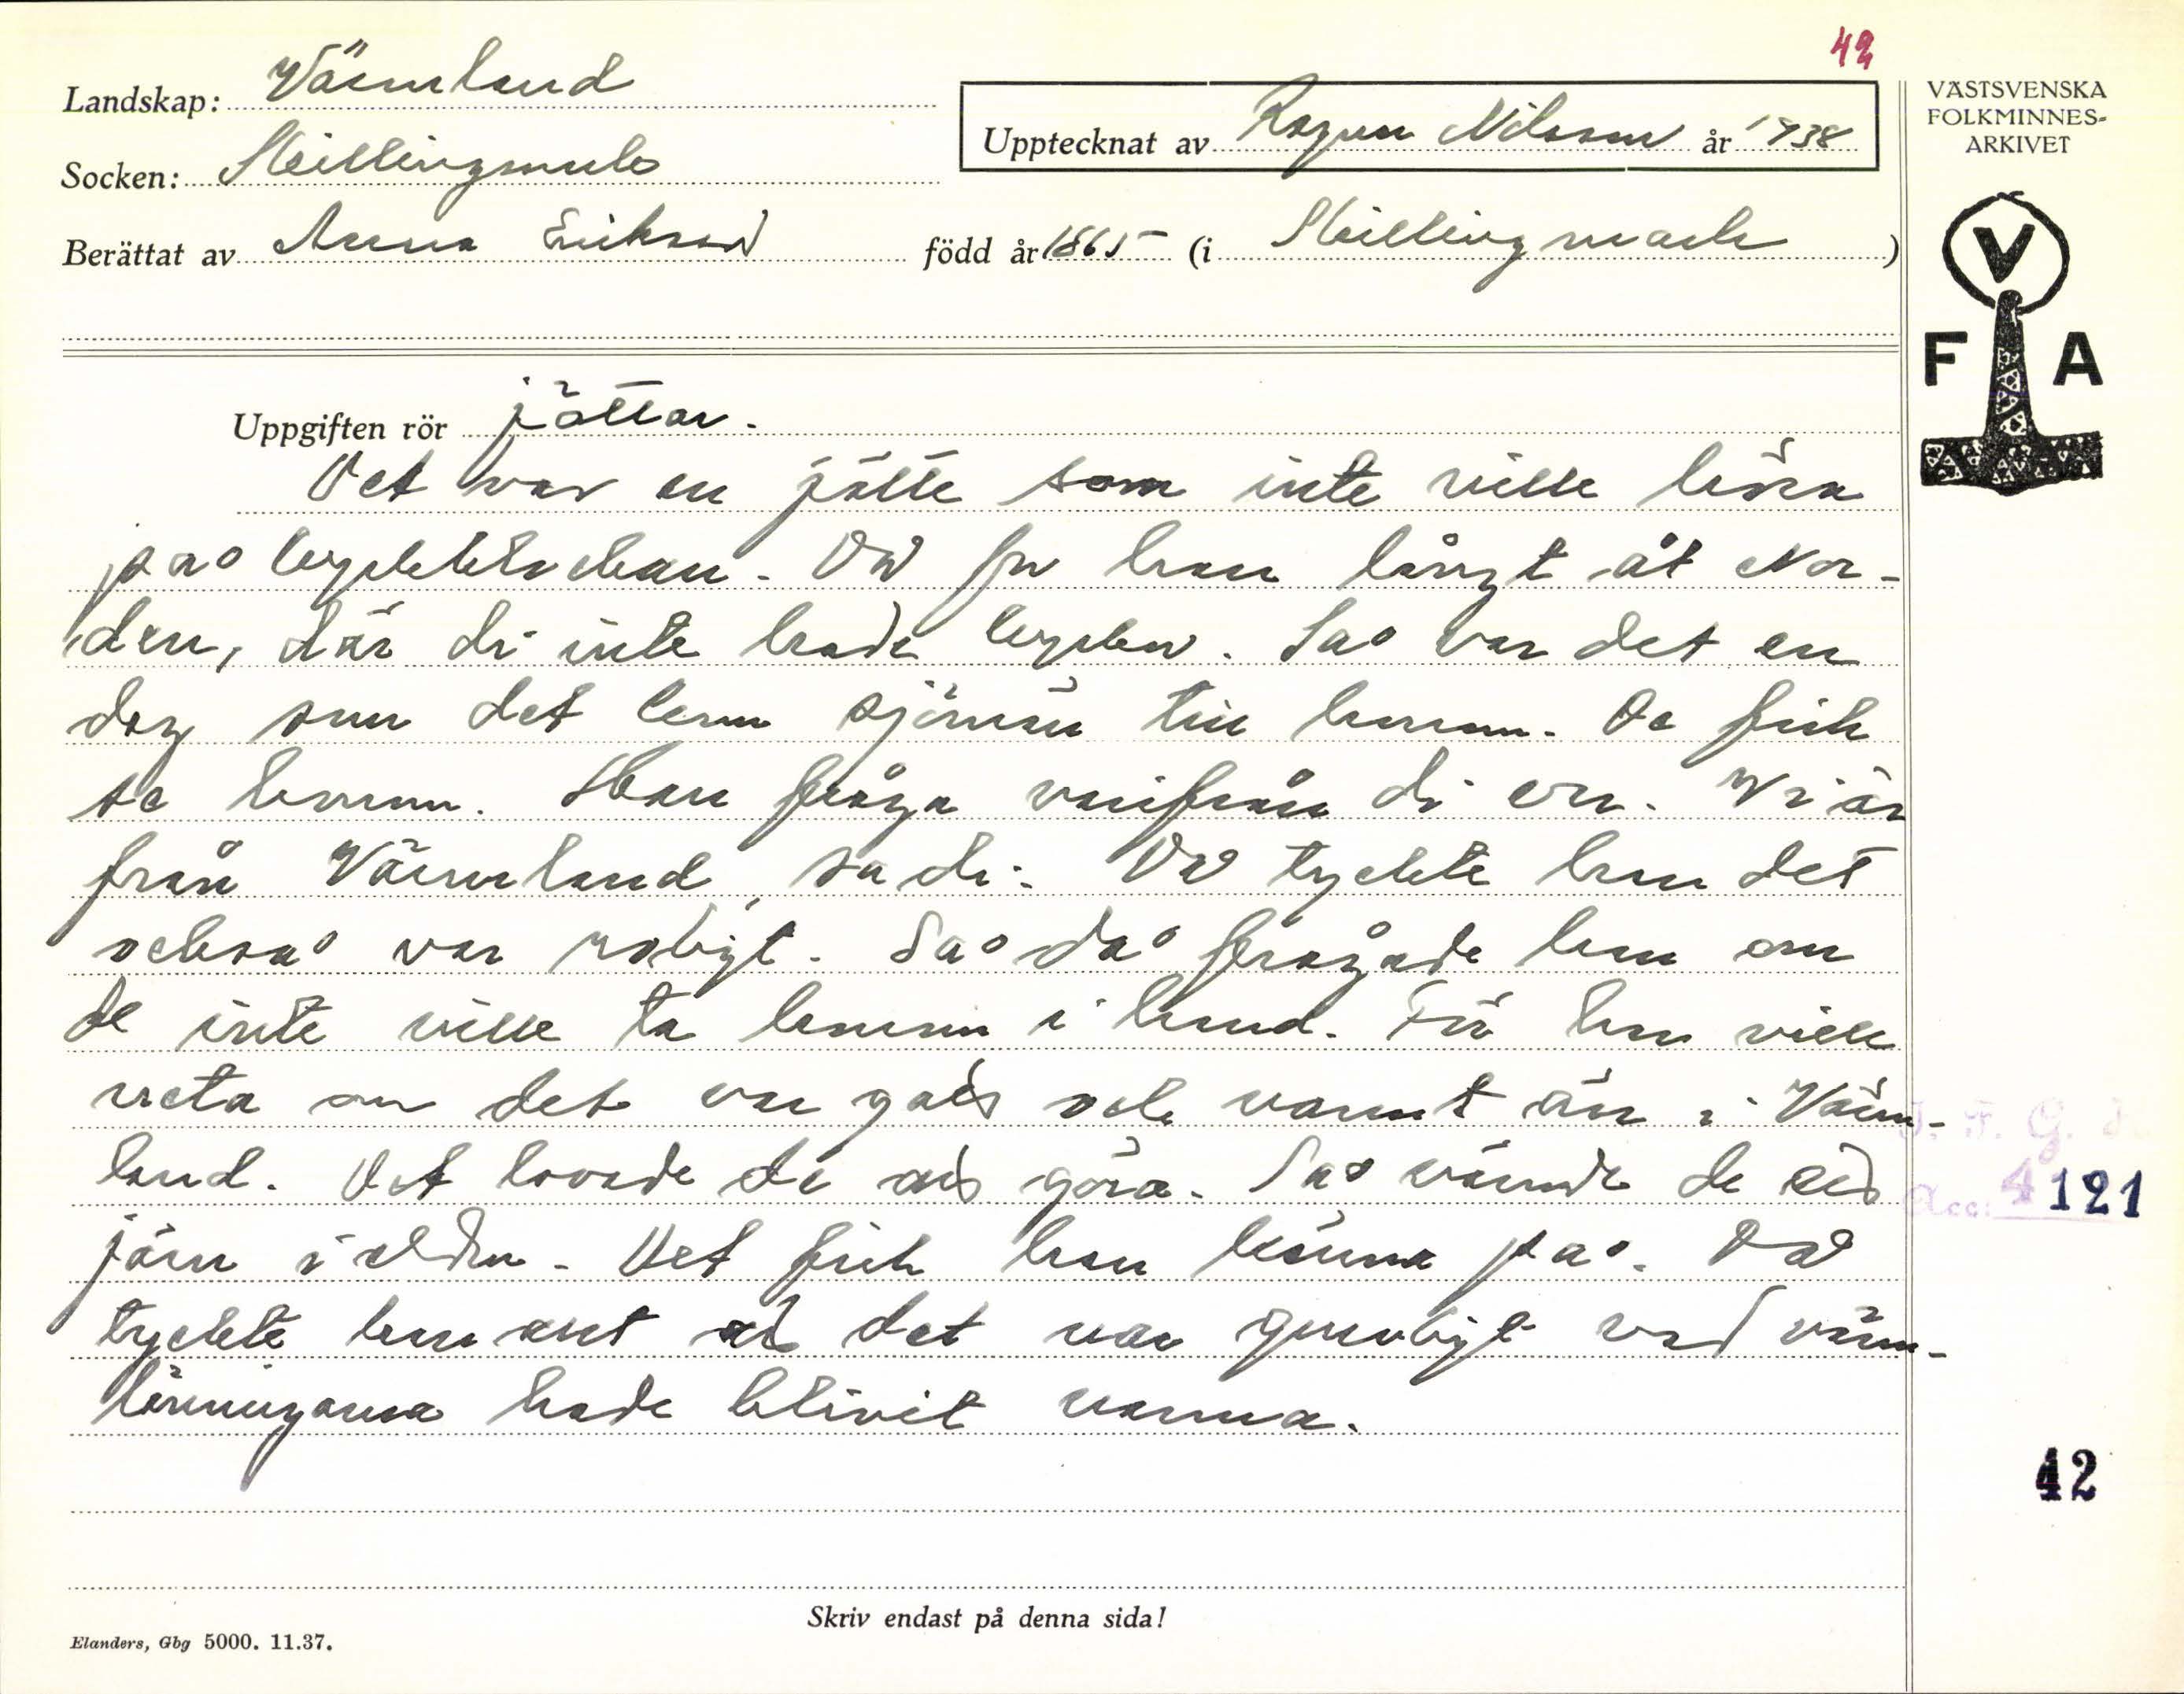 42
Landskap: Värmland
Upptecknat av Ragnar Nilsson år 1938
VÄSTSVENSKA
FOLKMINNES-
ARKIVET
Socken: Skillingmark
Berättat av Anna Erikson född år 1865 (i Skillingmark)
V
F A
Uppgiften rör jättar.
Det var en jätte som inte ville höra
på kyrkklockan. Då for han långt åt Nor-
den, där di inte hade kyrkor. Så var det en
dag som det kom sjömän till honom. De fick
se honom. Han fråga varifrån di var. Vi är
från Värmland, sa di. Då tyckte han det
också var roligt. Så då frågade han om
de inte ville ta honom i hand. För han ville
veta om det var gott och varmt än i Värm-
land. Det lovade de att göra. Så värmde de ett
järn i elden. Det fick han känna på. Då
tyckte han att det var vad värm-
länningarna hade blivit varma.
Acc: 4121
42
Skriv endast på denna sida!
Elanders, Gbg 5000. 11.37.